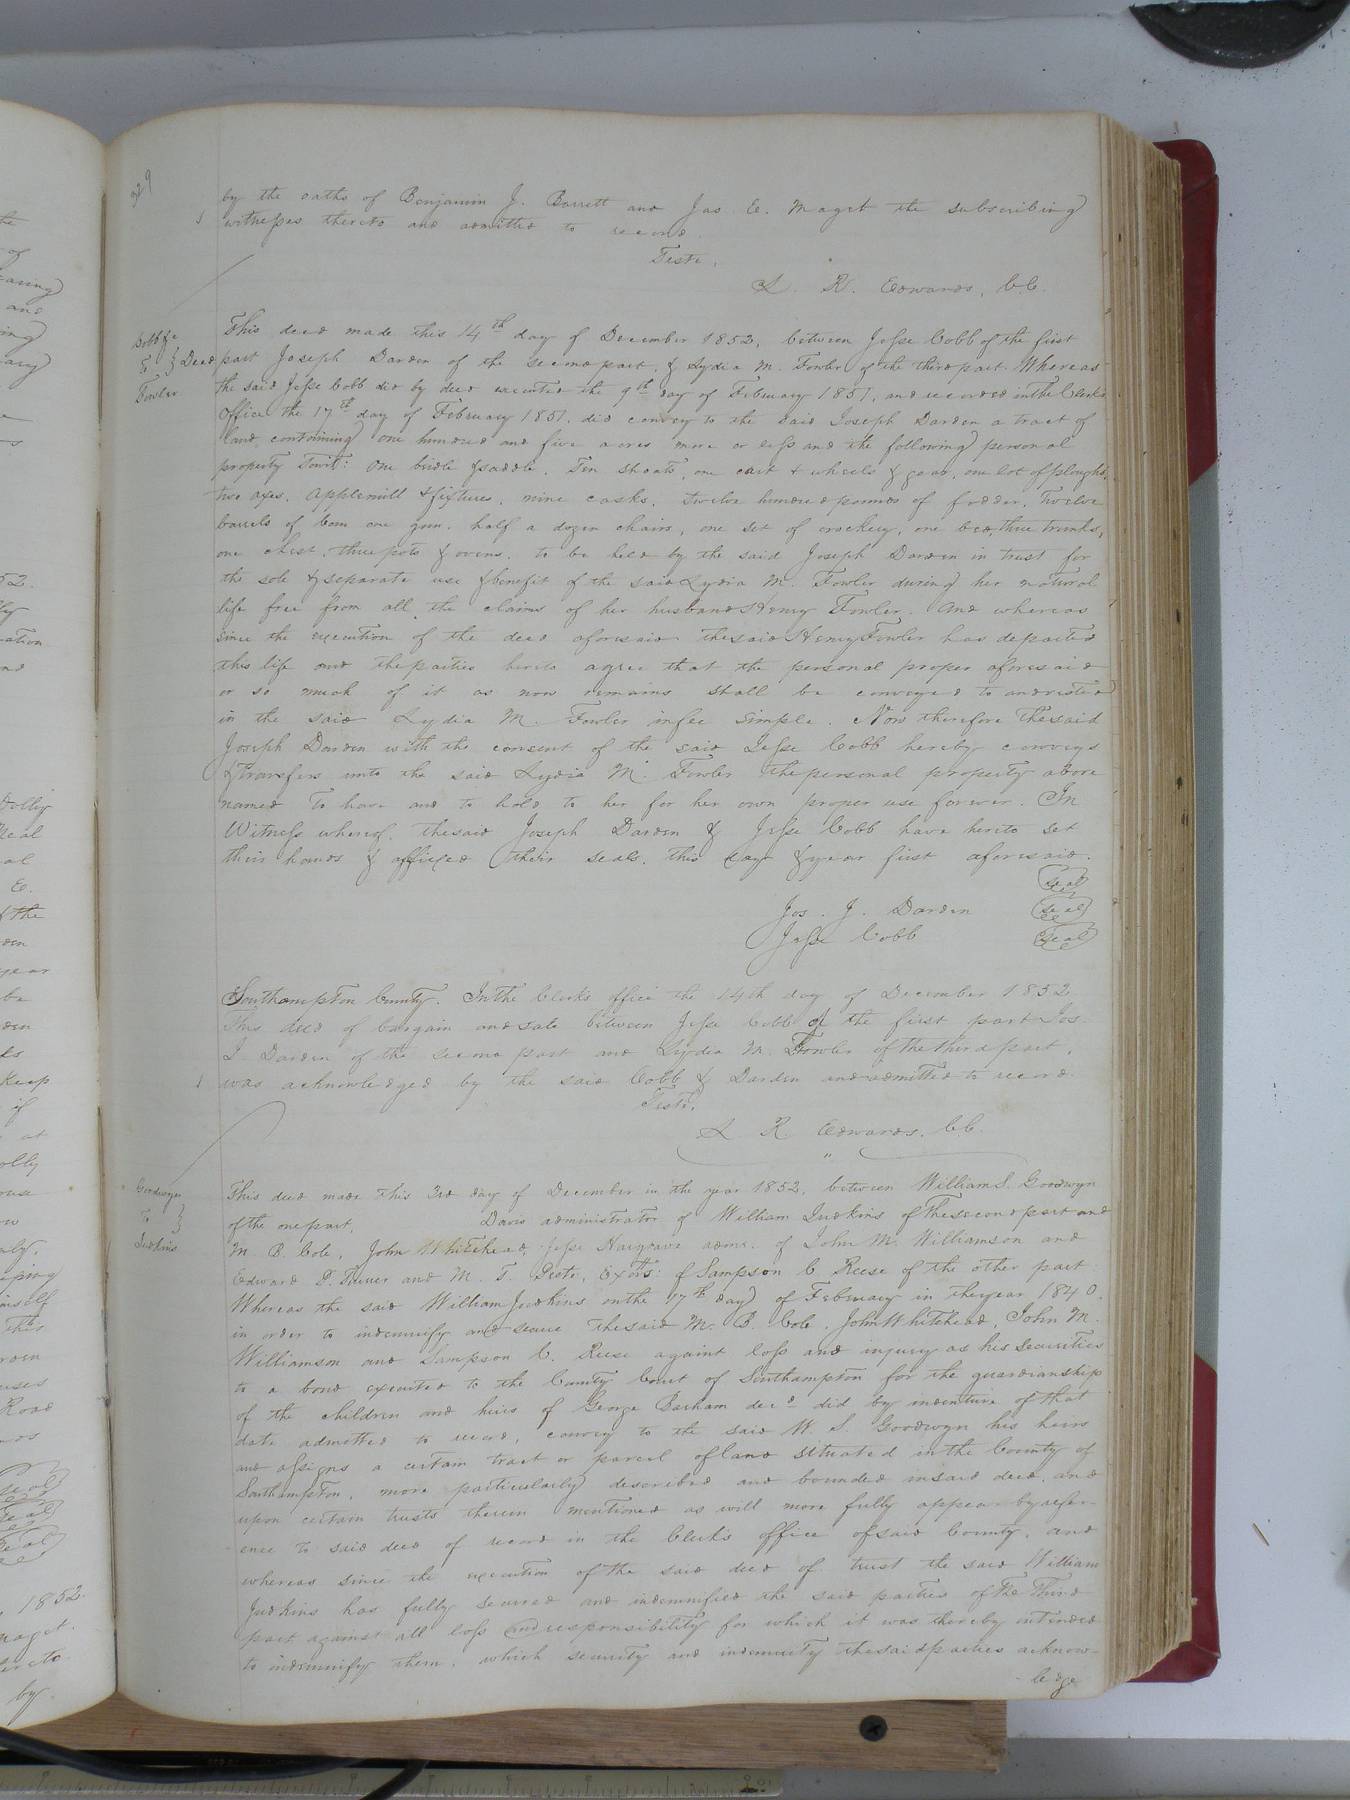 329
by the oaths of Benjamin J. Barrett and Jas. E. Maget the subscribing
witnesses thereto and admitted to record.
Teste,
L. R. Edwards, C.C.
Cobb &c
To } Deed
Fowler
This deed made this 14th day of December 1852, between Jesse Cobb of the first
part Joseph Darden of the second part, & Lydia M. Fowler of the third part. Whereas
the said Jesse Cobb did by deed executed the 9th day of February 1851, and recorded in the Clerks
Office the 17th day of February 1851, did convey to the said Joseph Darden a tract of
land, containing one hundred and five acres more or less and the following personal
property Towit: One bridle & saddle, Ten shoats, one cart & wheels & gear, one lot of ploughs,
two axes, Applemill & fixtures, nine casks, twelve hundred pounds of fodder, Twelve
barrels of Corn one gun, half a dozen chairs, one set of crockery, one bed, three trunks,
one chest, three pots & ovens, to be held by the said Joseph Darden in trust for
the sole & separate use & benefit of the said Lydia M. Fowler during her natural
life free from all the claims of her husband Henry Fowler. And whereas
since the execution of the deed aforesaid the said Henry Fowler has departed
this life and the parties hereto agree that the personal proper aforesaid
or so much of it as now remains shall be conveyed to and vested
in the said Lydia M. Fowler in fee simple. Now therefore the said
Joseph Darden with the consent of the said Jesse Cobb hereby conveys
& Transfers unto the said Lydia M. Fowler the personal property above
named To have and to hold to her for her own proper use forever. In
Witness whereof, the said Joseph Darden & Jesse Cobb have hereto set
their hands & affixed their seals, this day & year first aforesaid.
seal
Jos. J. Darden seal
Jesse Cobb seal
Southampton County. In the Clerks office the 14th day of December 1852
This deed of bargain and sale between Jesse Cobb of the first part Jos.
J. Darden of the second part and Lydia M. Fowler of the third part,
was acknowledged by the said Cobb & Darden and admitted to record.
Teste,
L. R. Edwards, C.C.
Goodwyn
To }
Judkins
This deed made this 3rd day of December in the year 1852, between William S. Goodwyn
of the one part, Davis administrator of William Judkins of the second part and
M. B. Cole, John Whitehead, Jesse Hargrave admr. of John M. Williamson and
Edward P. Turner and M. T. Peete, Exors: of Sampson C. Reese of the other part
Whereas the said William Judkins on the 17th day of February in the year 1840,
in order to indemnify and secure the said M. B. Cole, John Whitehead, John M.
Williamson and Sampson C. Reese against loss and injury as his securities
to a bond executed to the County Court of Southampton for the guardianship
of the children and heirs of George Barham decd did by indenture of that
date admitted to record, convey to the said W. S. Goodwyn his heirs
and assigns a certain tract or parcel of land situated in the County of
Southampton, more particularly described and bounded in said deed, and
upon certain trusts therein mentioned as will more fully appear by refer-
ence to said deed of record in the Clerks office of said County, and
whereas since the execution of the said deed of trust the said William
Judkins has fully secured and indemnified the said parties of the Third
part against all loss and responsibility for which it was thereby intended
to indemnify them, which security and indemnity the said parties acknow-
-ledge